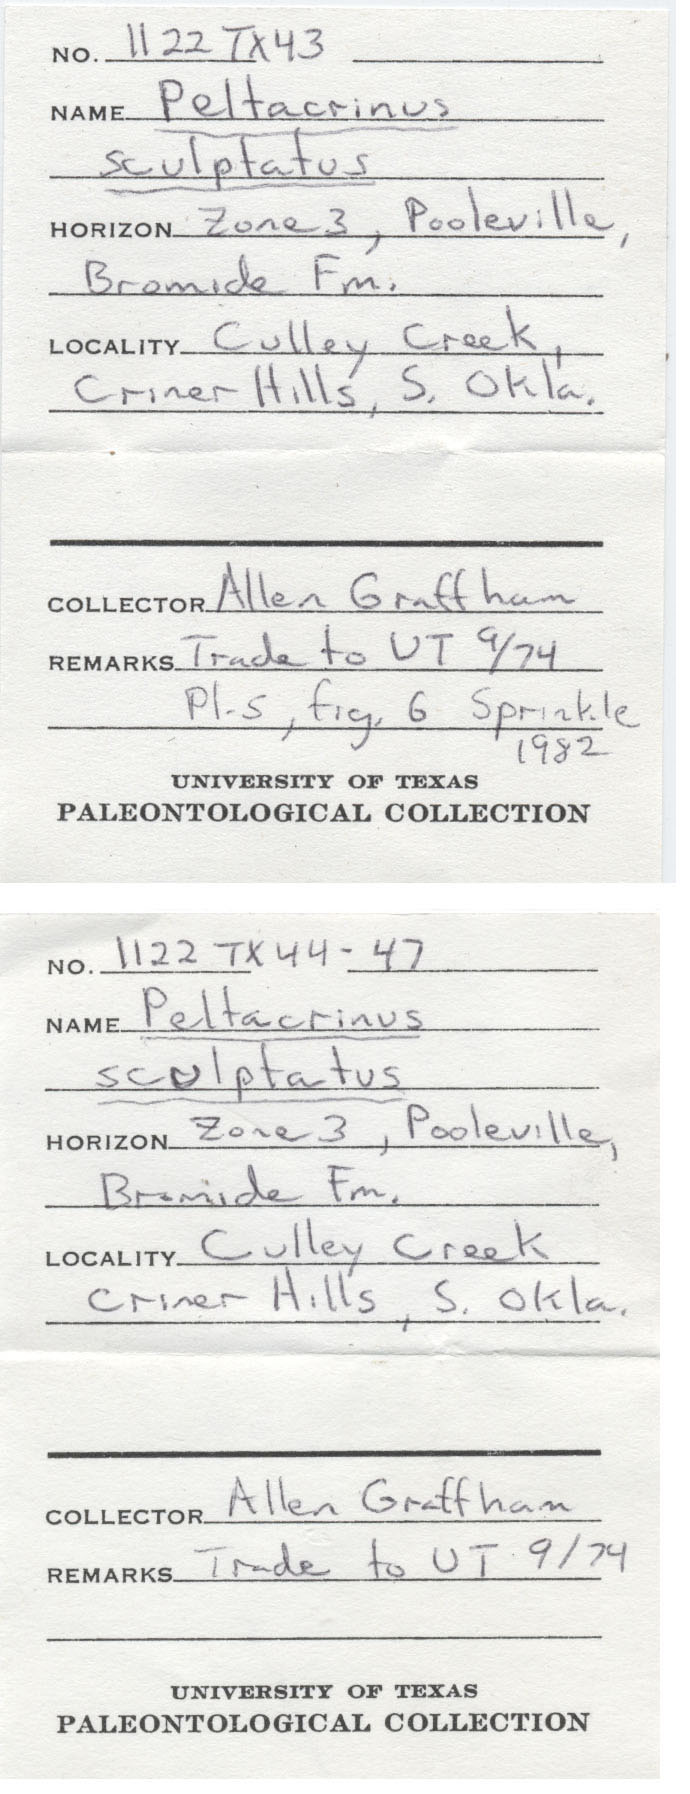 NO. 1122 TX43
NAME Peltacrinus
sculptatus
HORIZON Zone 3, Pooleville,
Bromide Fm.
LOCALITY Culley Creek,
Criner Hills, S. Okla.
COLLECTOR Allen Graffham
REMARKS Trade to UT 9/74
Pl. 5, fig. 6 Sprinkle
1982
UNIVERSITY OF TEXAS
PALEONTOLOGICAL COLLECTION
NO. 1122 TX44-47
NAME Peltacrinus
sculptatus
HORIZON Zone 3, Pooleville,
Bromide Fm.
LOCALITY Culley Creek
Criner Hills, S. Okla.
COLLECTOR Allen Graffham
REMARKS Trade to UT 9/74
UNIVERSITY OF TEXAS
PALEONTOLOGICAL COLLECTION